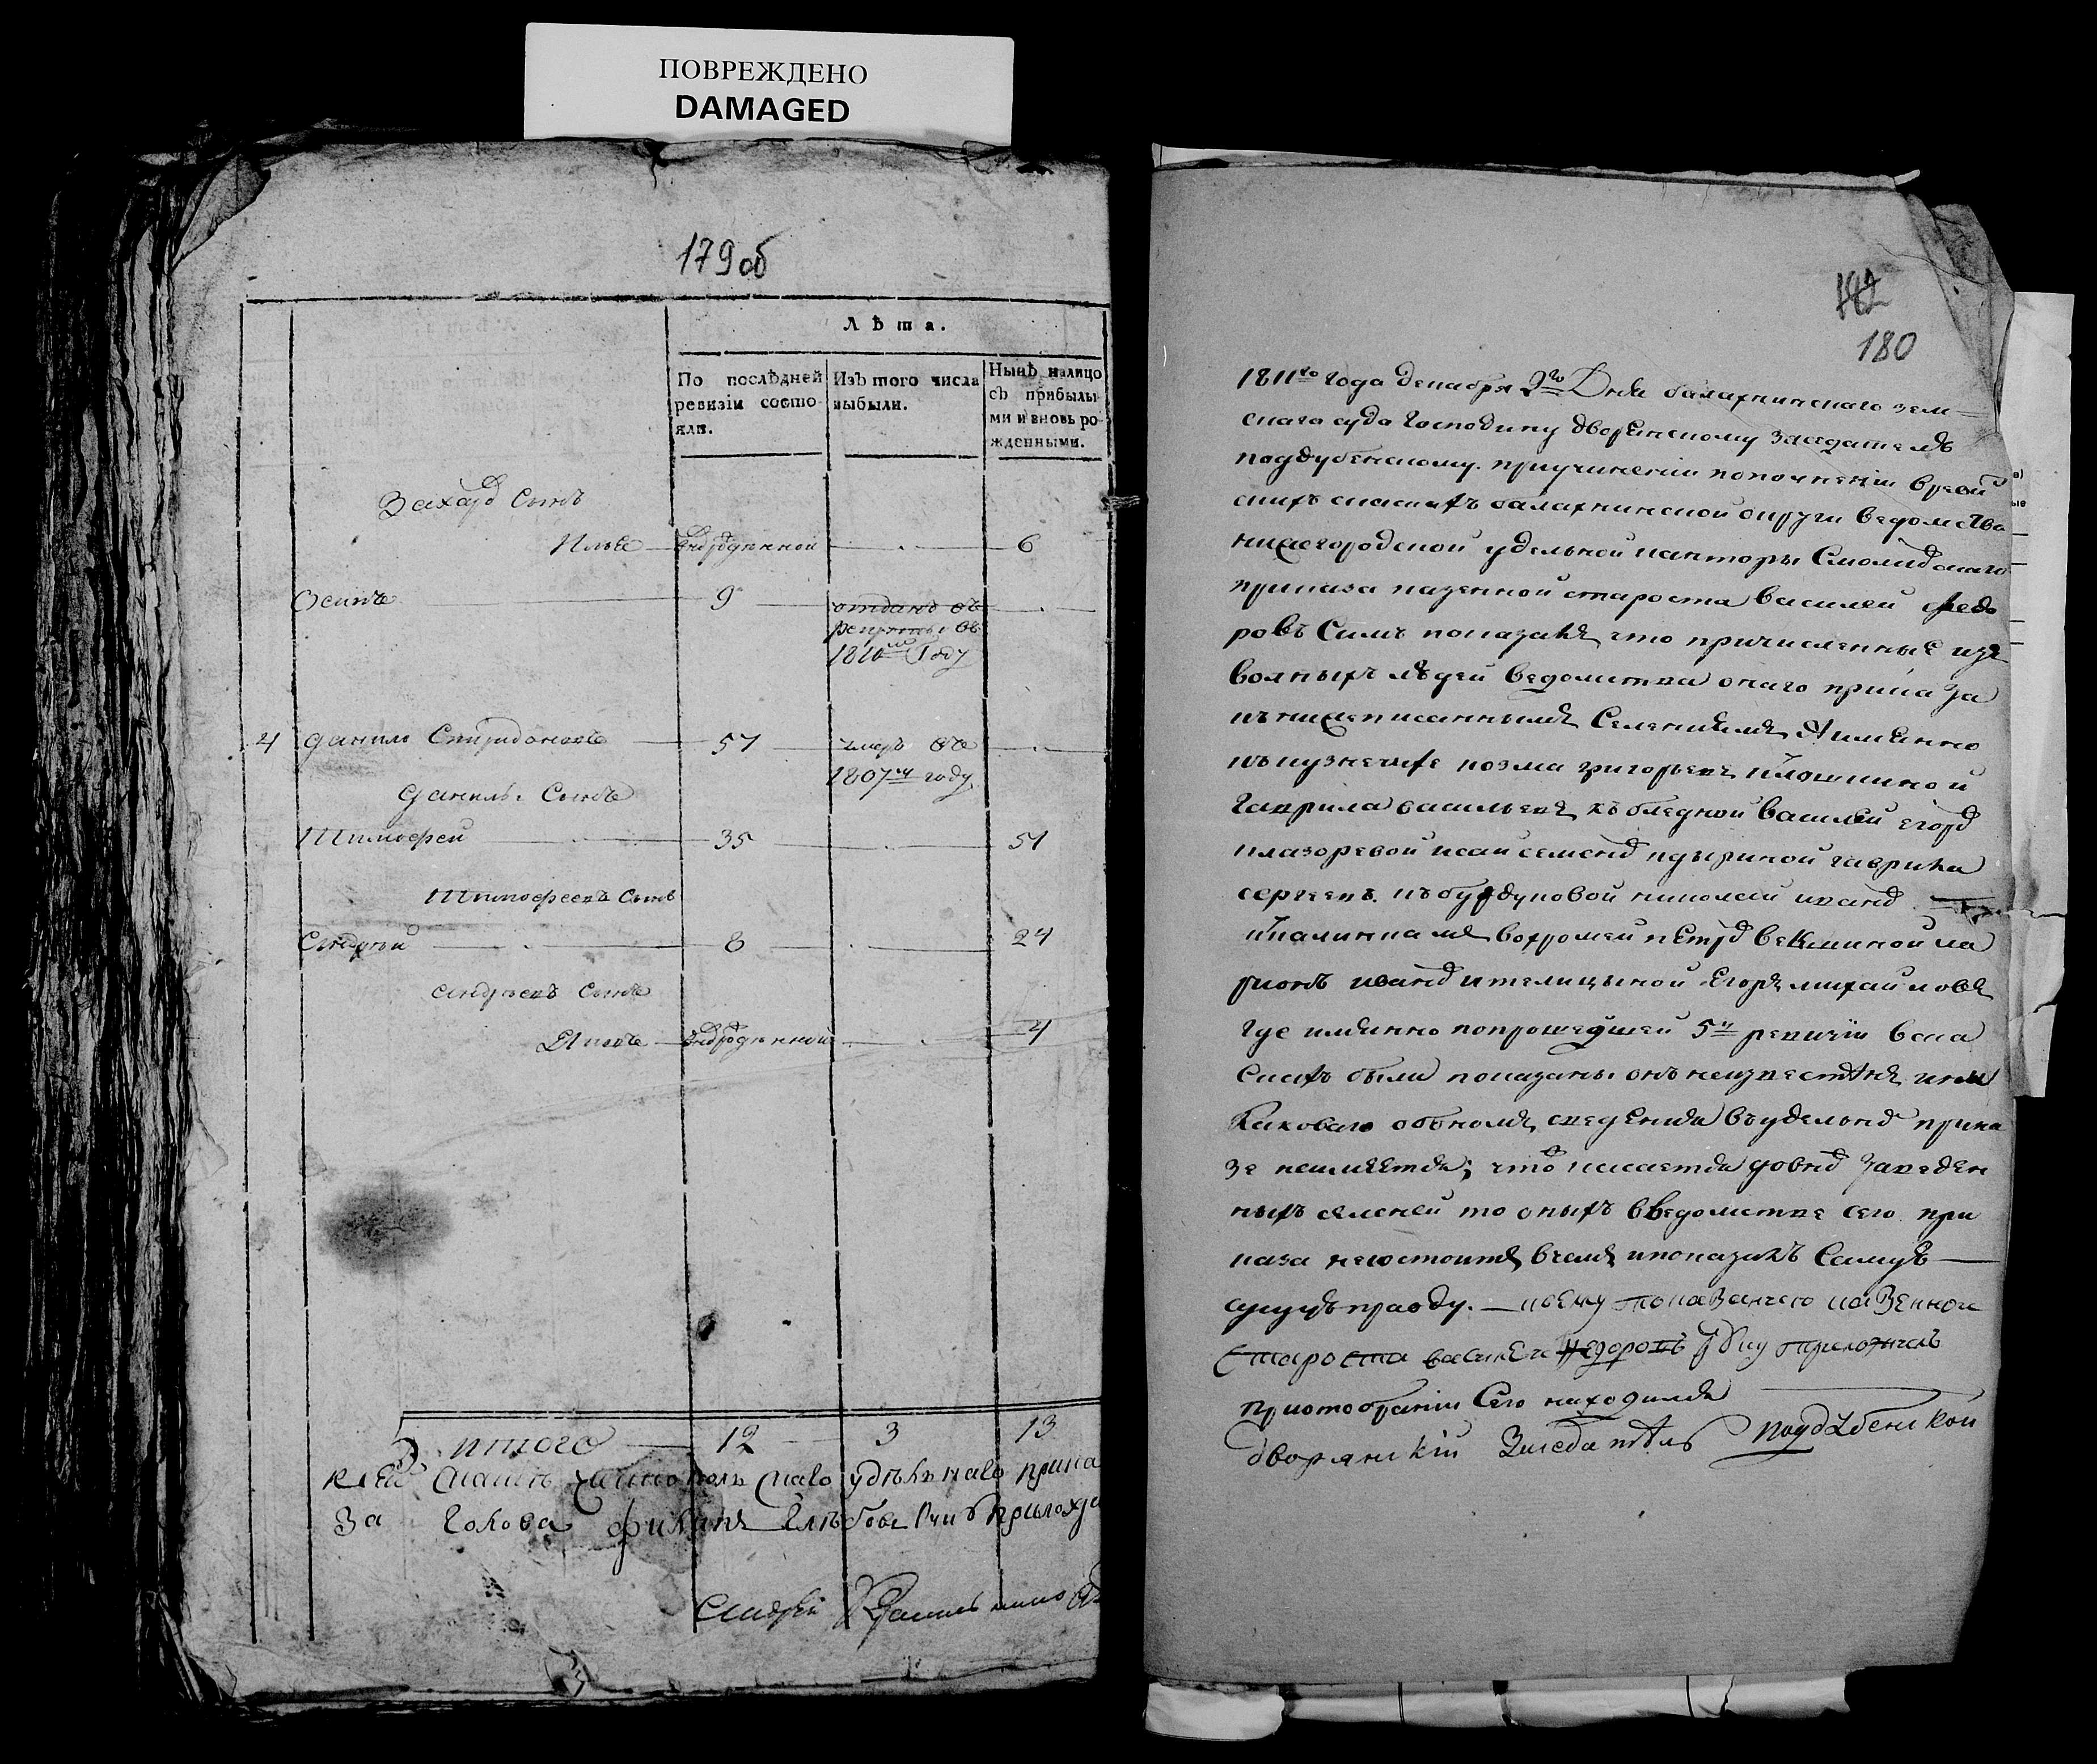 ПОВРЕЖДЕНО
DAMAGED
179 об
Лѣта.
По послѣдней ревизіи состояли.
Изъ того числа выбыли.
Нынѣ налицо съ прибылыми и вновь рожденными.
Захара сынъ
Илья новорожденной 6
Осипъ 9 отданъ въ
рекруты въ
1810м году
4 Данило Спиридоновъ 57 умеръ въ
1807м году
Данилы сынъ
Тимофей 35 51
Тимофеевъ сынъ
Андрей 8 24
Андреевъ сынъ
Яковъ новорожденной 4
итого 12 3 13
к сей
удѣльнаго прика
за голова приложи
Андрей
180
1811го года декабря 2го дня балахнинскаго зем
скаго суда господину дворенскому заседателю
поддубенскому. приучинении пополнении вреви
скихъ сказкахъ балахнинской округи ведомства
нижегородской удельной канторы
приказа казенной староста василей федо
ровъ симъ показалъ что причисленные изъ
волныхъ людей ведомства онаго приказа
къ нижеписаннымъ селениямъ а имянно
къ кузнечихе козма григорьевъ
гаврила васильевъ къ бледной василей егоров
лазоревой исай семенов гаврила
сергеевъ. къ бурдуковой николай иванов
петров векшиной ла
рионъ иванов ителицыной егоръ михайловъ
где имянно попрошедшей 5й ревизіи вска
скахъ были показаны онъ неизвестенъ и ни
каковаго обономъ сведения вудельном прика
зе неимеется; что касается доновь заведен
ныхъ селеней то оныхъ введомстве сего при
каза несостоитъ всемъ ипоказалъ самую
сущую правду. — ксему показанию казенной
староста василей федоровъ руку приложилъ
приотобрании сего находился
дворянский заседатель поддубенской